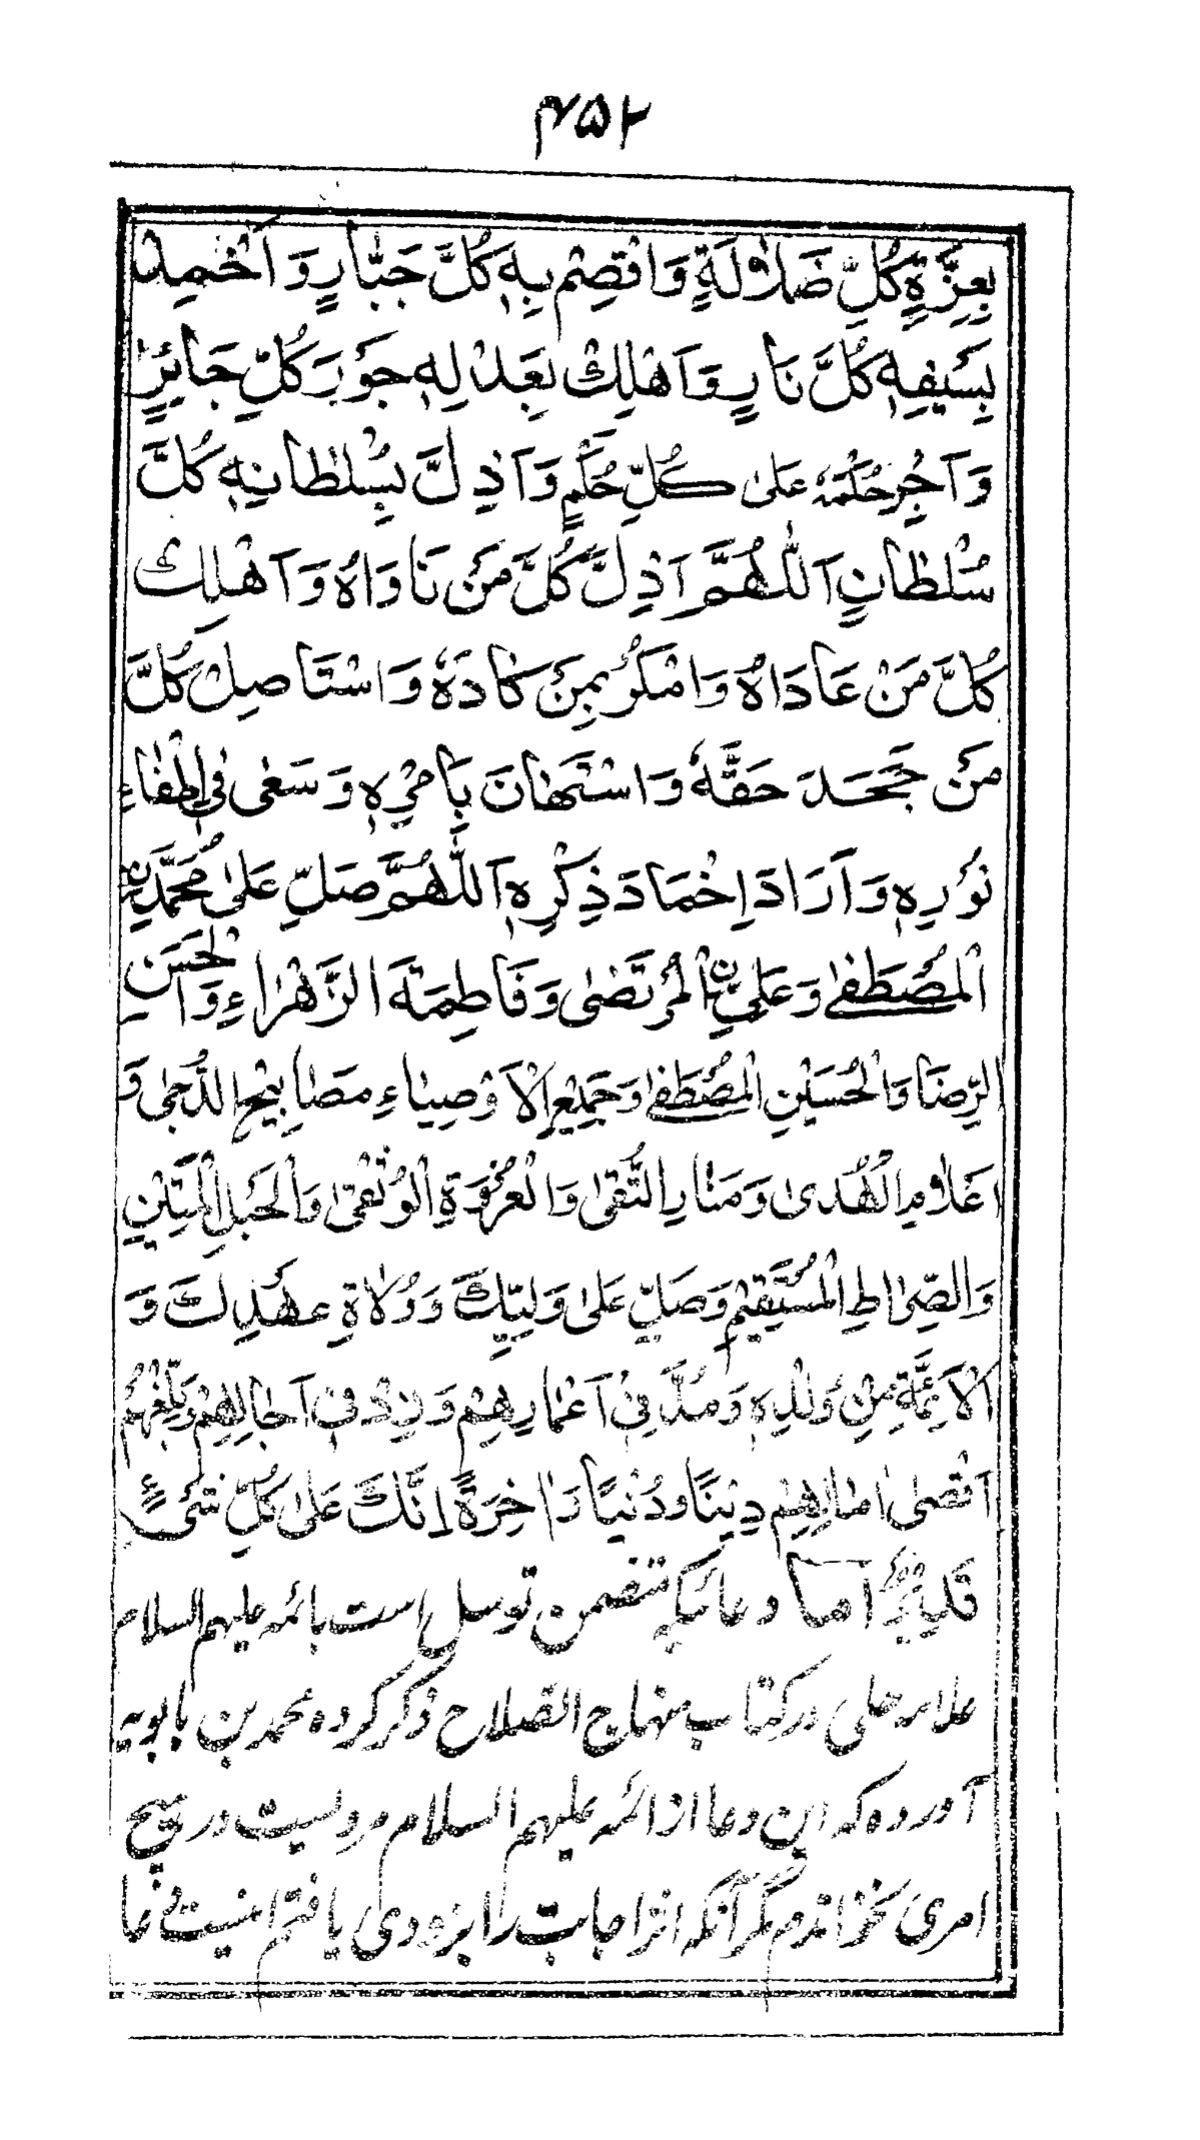 ۴۵۲
بِعِزَّةٍ كُلَّ ضَلَالَةٍ وَاقْصِمْ بِهٖ كُلَّ جَبَّارٍ وَاَخْمِدْ
بِسَيْفِهٖ كُلَّ نَارٍ وَاَهْلِكْ بِعَدْلِهٖ جَوْرَ كُلِّ جَائِرٍ
وَاَجْرِ حُكْمَهٗ عَلٰى كُلِّ حُكْمٍ وَاَذِلَّ بِسُلْطَانِهٖ كُلَّ
سُلْطَانٍ اَللّٰهُمَّ اَذِلَّ كُلَّ مَنْ نَاوَاهُ وَاَهْلِكْ
كُلَّ مَنْ عَادَاهُ وَامْكُرْ بِمَنْ كَادَهٗ وَاسْتَاصِلْ كُلَّ
مَنْ جَحَدَ حَقَّهٗ وَاسْتَهَانَ بِاَمْرِهٖ وَسَعٰى فِي اِطْفَاءِ
نُوْرِهٖ وَاَرَادَ اِخْمَادَ ذِكْرِهٖ اَللّٰهُمَّ صَلِّ عَلٰى مُحَمَّدٍنِ
الْمُصْطَفٰى وَعَلِيٍّنِ الْمُرْتَضٰى وَفَاطِمَةَ الزَّهْرَاءِ وَالْحَسَنِ
الرِّضَا وَالْحُسَيْنِ الْمُصْطَفٰى وَجَمِيْعِ الْاَوْصِيَاءِ مَصَابِيْحِ الدُّجٰى وَ
اَعْلَامِ الْهُدٰى وَمَنَارِ التُّقٰى وَالْعُرْوَةِ الْوُثْقٰى وَالْحَبْلِ الْمَتِيْنِ
وَالصِّرَاطِ الْمُسْتَقِيْمِ وَصَلِّ عَلٰى وَلِيِّكَ وَوُلَاةِ عَهْدِكَ وَ
الْاَئِمَّةِ مِنْ وُلْدِهٖ وَمُدَّ فِيْ اَعْمَارِهِمْ وَزِدْ فِيْ اٰجَالِهِمْ وَبَلِّغْهُمْ
اَقْصٰى اٰمَالِهِمْ دِيْنًا وَدُنْيَا وَاٰخِرَةً اِنَّكَ عَلٰى كُلِّ شَيْءٍ
قَدِيْرٌ اما دعائیکه متضمن توسل است بائمه علیهم السلام
علامه حلی در کتاب منهاج الصلاح ذکر کرده محمد بن بابویه
آورده که این دعا از ائمه علیهم السلام مرویست در هیچ
امری نخواندم مگر آنکه اثر اجابت را بزودی یافتم اینست